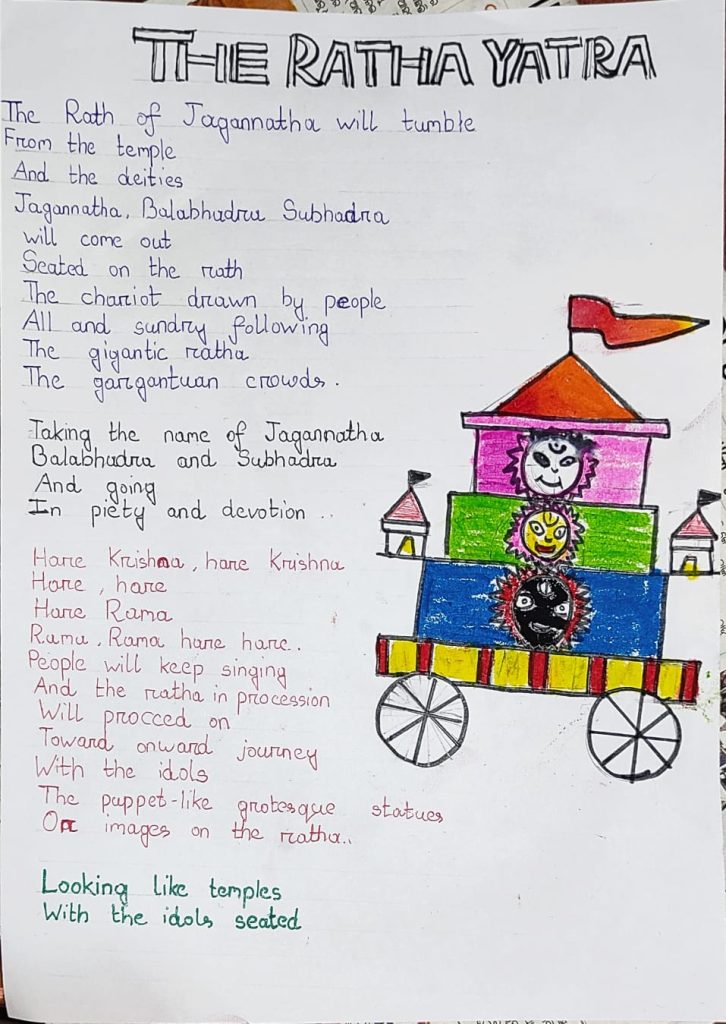 THE RATHA YATRA
The Rath of Jagannatha will tumble
From the temple
And the deities
Jagannatha, Balabhadra Subhadra
will come out
Seated on the rath
The chariot drawn by people
All and sundry following
The gigantic ratha
The gargantuan crowds.
Taking the name of Jagannatha
Balabhadra and Subhadra
And going
In piety and devotion ..
Hare Krishna, hare Krishna
Hare, hare
Hare Rama
Rama, Rama hare hare..
People will keep singing
And the ratha in procession
Will procced on
Toward onward journey
With the idols
The puppet-like grotesque statues
Or images on the ratha..
Looking like temples
With the idols seated